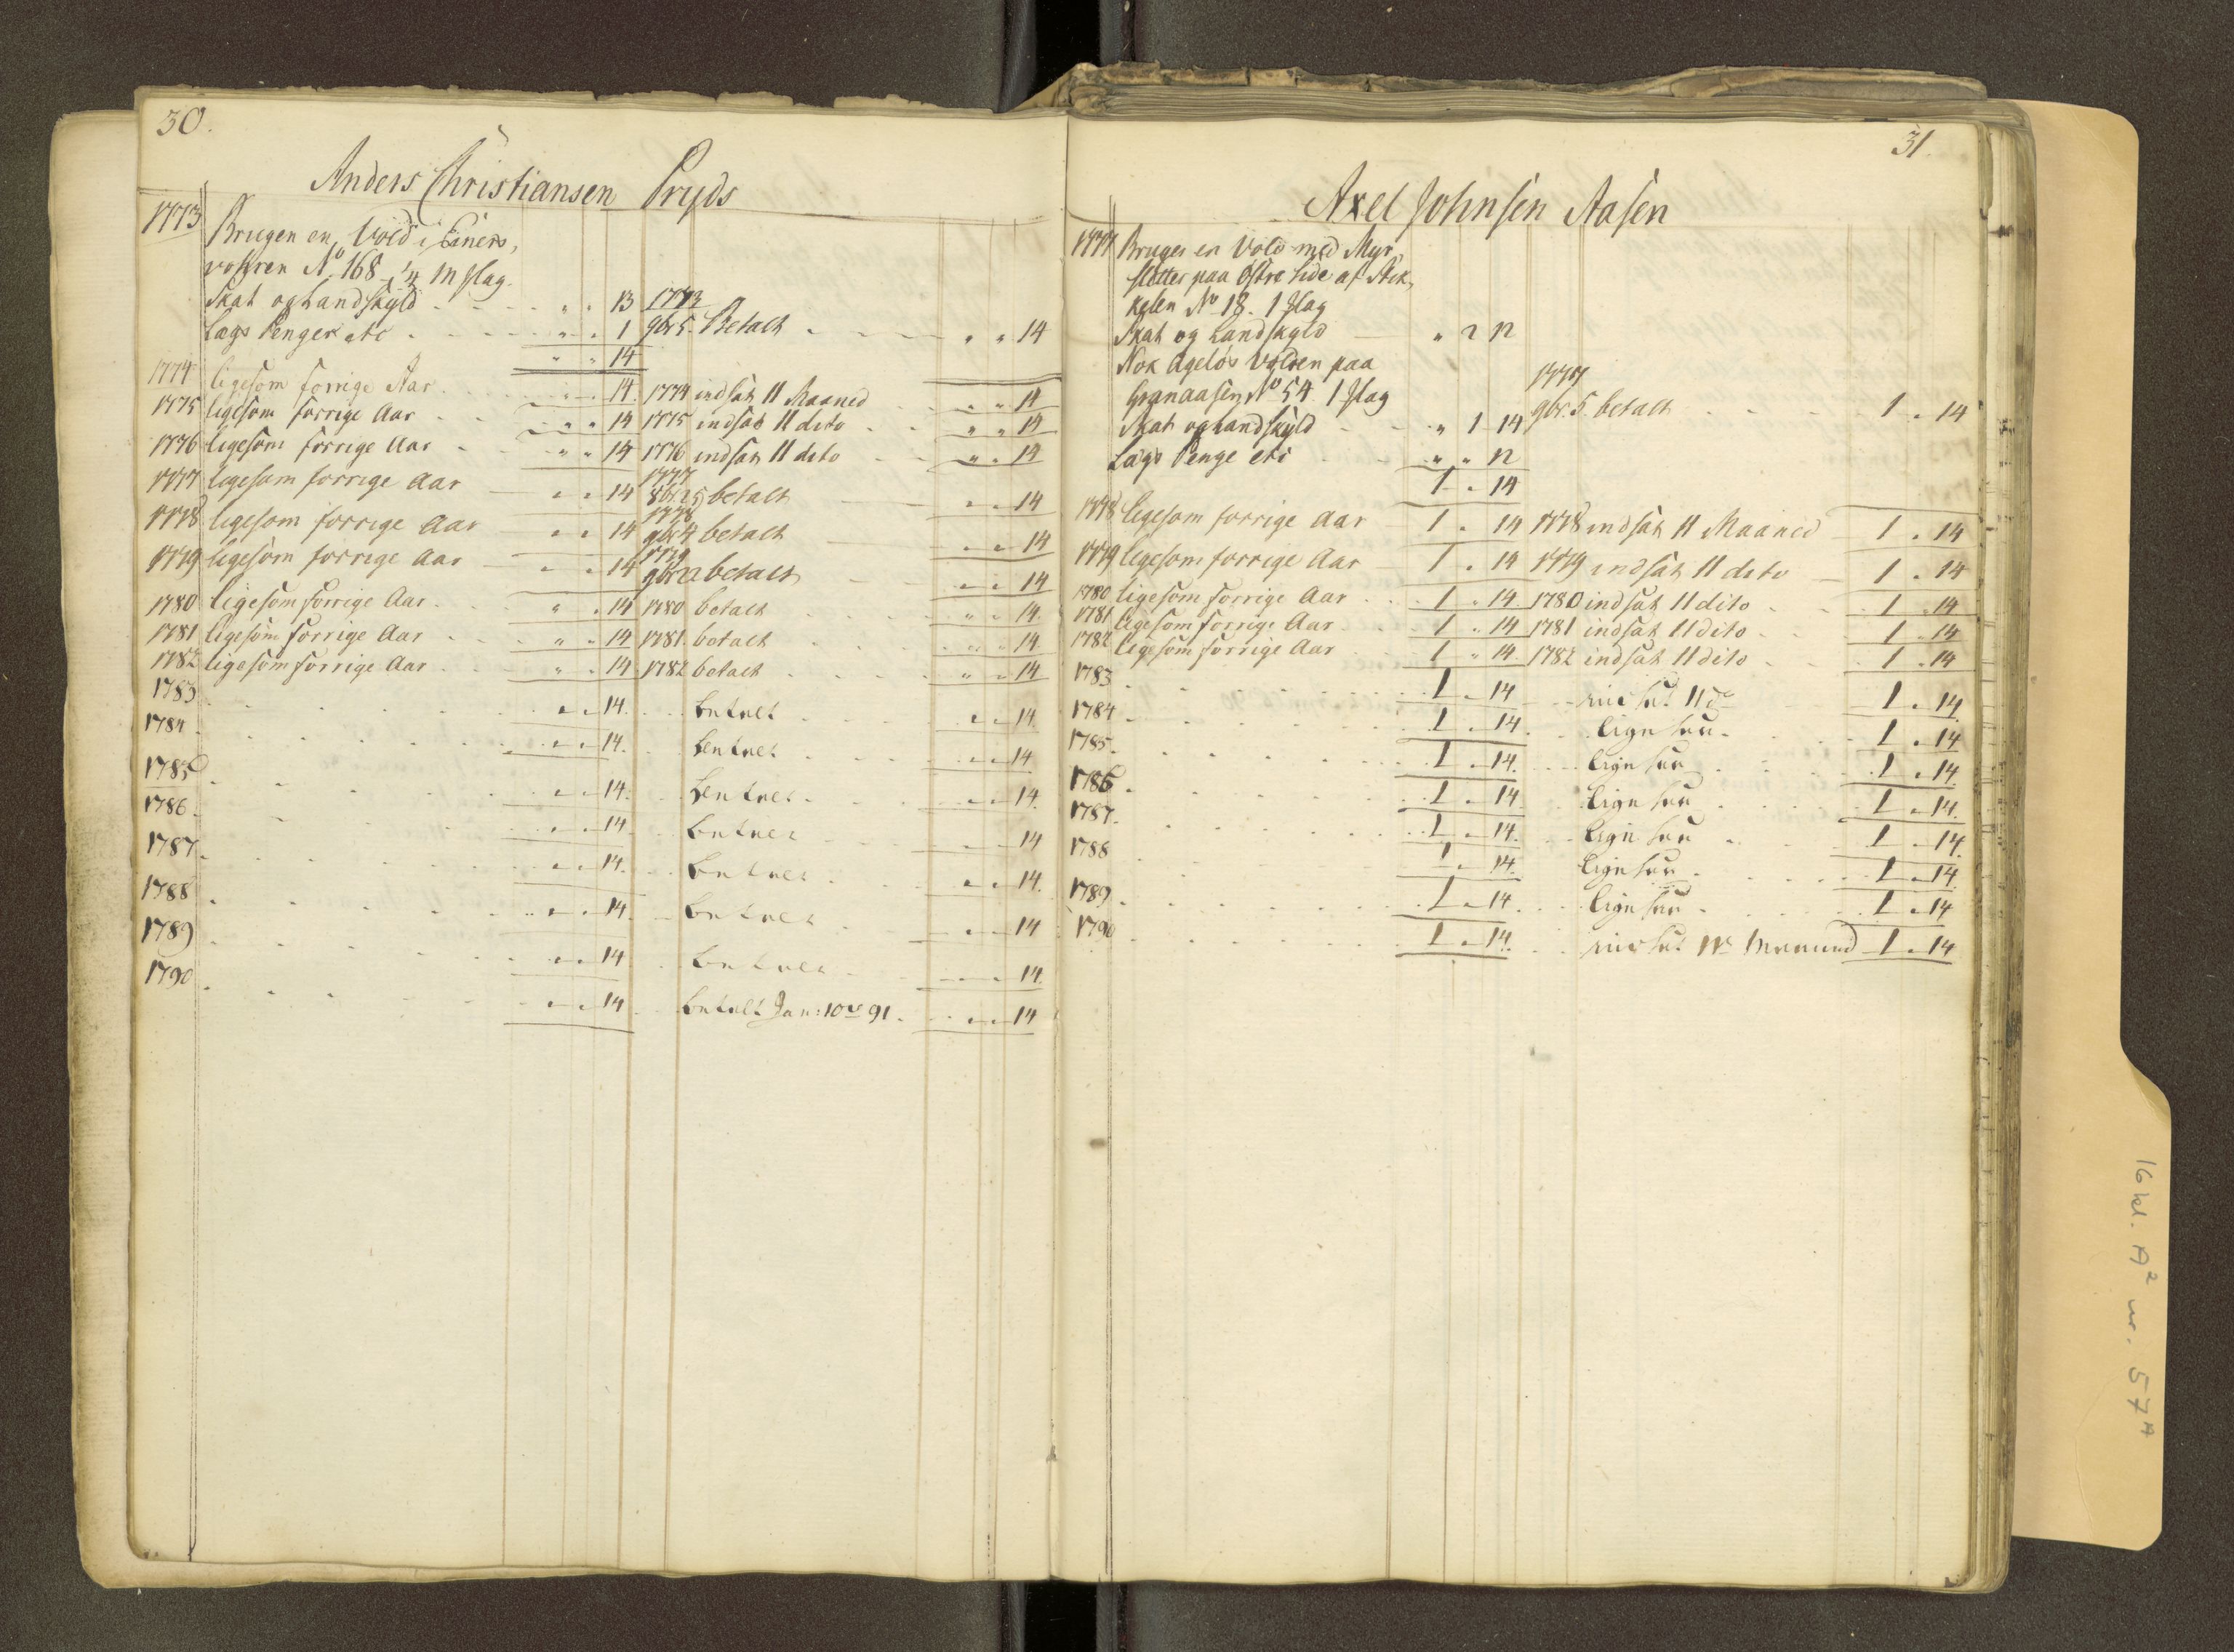 30.
Anders Christiansen Pryds
1773 Brugen en Vold i Einers,
vohren No. 168 - 1/4 m slag.
Skat og Landskyld - - - " " 13 1773
Lags Penger etc - - - " " 1 9br 5. Betalt - - - " " 14
" " 14
1774 ligesom forrige Aar - " " 14. 1774 indsat 11 Maaned " " 14
1775 ligesom forrige Aar - " " 14 1775 indsat 11 dito " " 14
1776 ligesom forrige Aar - " " 14 1776 indsat 11 dito " " 14
1777
1777 ligesom forrige Aar - " " 14 8br 25 betalt - " " 14
1778
1778 ligesom forrige Aar " " 14 9br 4 betalt - " " 14
1779
1779 ligesom forrige Aar - " " 14 9br 12 betalt - " " 14
1780 ligesom forrige Aar. " " 14 1780 betalt " " 14.
1781 ligesom forrige Aar " " 14 1781. betalt " " 14
1782 ligesom forrige Aar " " 14 1782 betalt " " 14
1783 " " 14. betalt " " 14.
1784 " " 14. betalt " " 14
1785 " " 14. betalt " " 14.
1786 " " 14 betalt " " 14
1787 " " 14. betalt " " 14.
1788 " " 14. betalt " " 14
1789 " " 14 betalt " " 14.
1790 " " 14 betalt Jan: 10de 91. " " 14
31.
Axel Johnsen Aasen
1777 Bruger en Vold med Myr,
sletter paa Østre side af Stik,
kelen No 18. 1 slag
Skat og Landskyld - " 2 12
Nok Ageløs Volden paa
Granaasen No 54 1 slag 1777
Skat og Landskyld - - " 1 14 9br. 5. betalt - - - 1 " 14
Lags Penge etc - - " " 12
1 " 14
1778 ligesom forrige Aar 1 " 14 1778 indsat 11 Maaned 1 " 14
1779 ligesom forrige Aar 1 " 14 1779 indsat 11 dito - 1 " 14
1780 ligesom forrige Aar 1 " 14 1780 indsat 11 dito 1 " 14
1781 ligesom forrige Aar 1 " 14 1781 indsat 11 dito 1 " 14
1782 ligesom forrige Aar 1 " 14 1782 indsat 11 dito 1 " 14
1783 1 " 14 indsat 11 do 1 " 14
1784 1 " 14 ligesaa 1 " 14
1785 1 " 14. ligesaa 1 " 14
1786 1 " 14 ligesaa 1 " 14.
1787 1 " 14. ligesaa 1 " 14.
1788 1 " 14. ligesaa 1 " 14
1789 1 " 14 ligesaa 1 " 14
1790 1 " 14. indsat Maaned 1 " 14
16 kl. A2 nr. 57A